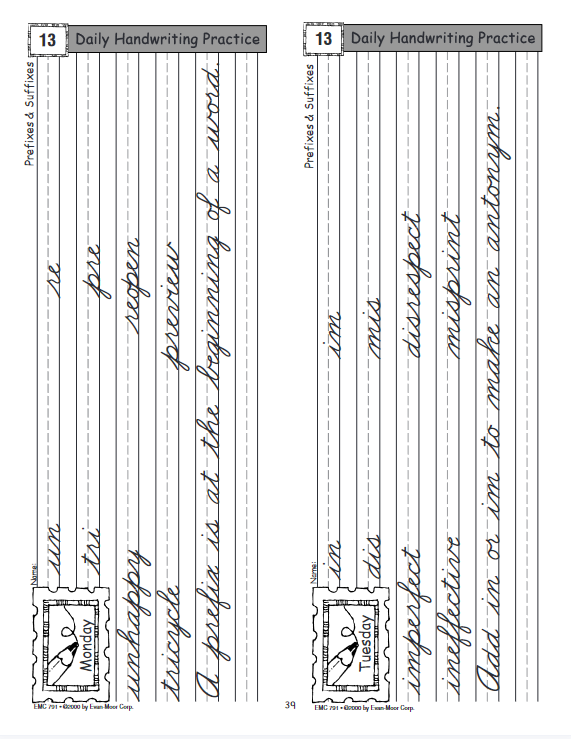 13 Daily Handwriting Practice
Prefixes & Suffixes
Name:
Monday
un re
tri pre
unhappy reopen
tricycle preview
A prefix is at the beginning of a word.
EMC 791 • ©2000 by Evan-Moor Corp.
39
13 Daily Handwriting Practice
Prefixes & Suffixes
Name:
Tuesday
in im
dis mis
imperfect disrespect
ineffective misprint
Add in or im to make an antonym.
EMC 791 • ©2000 by Evan-Moor Corp.